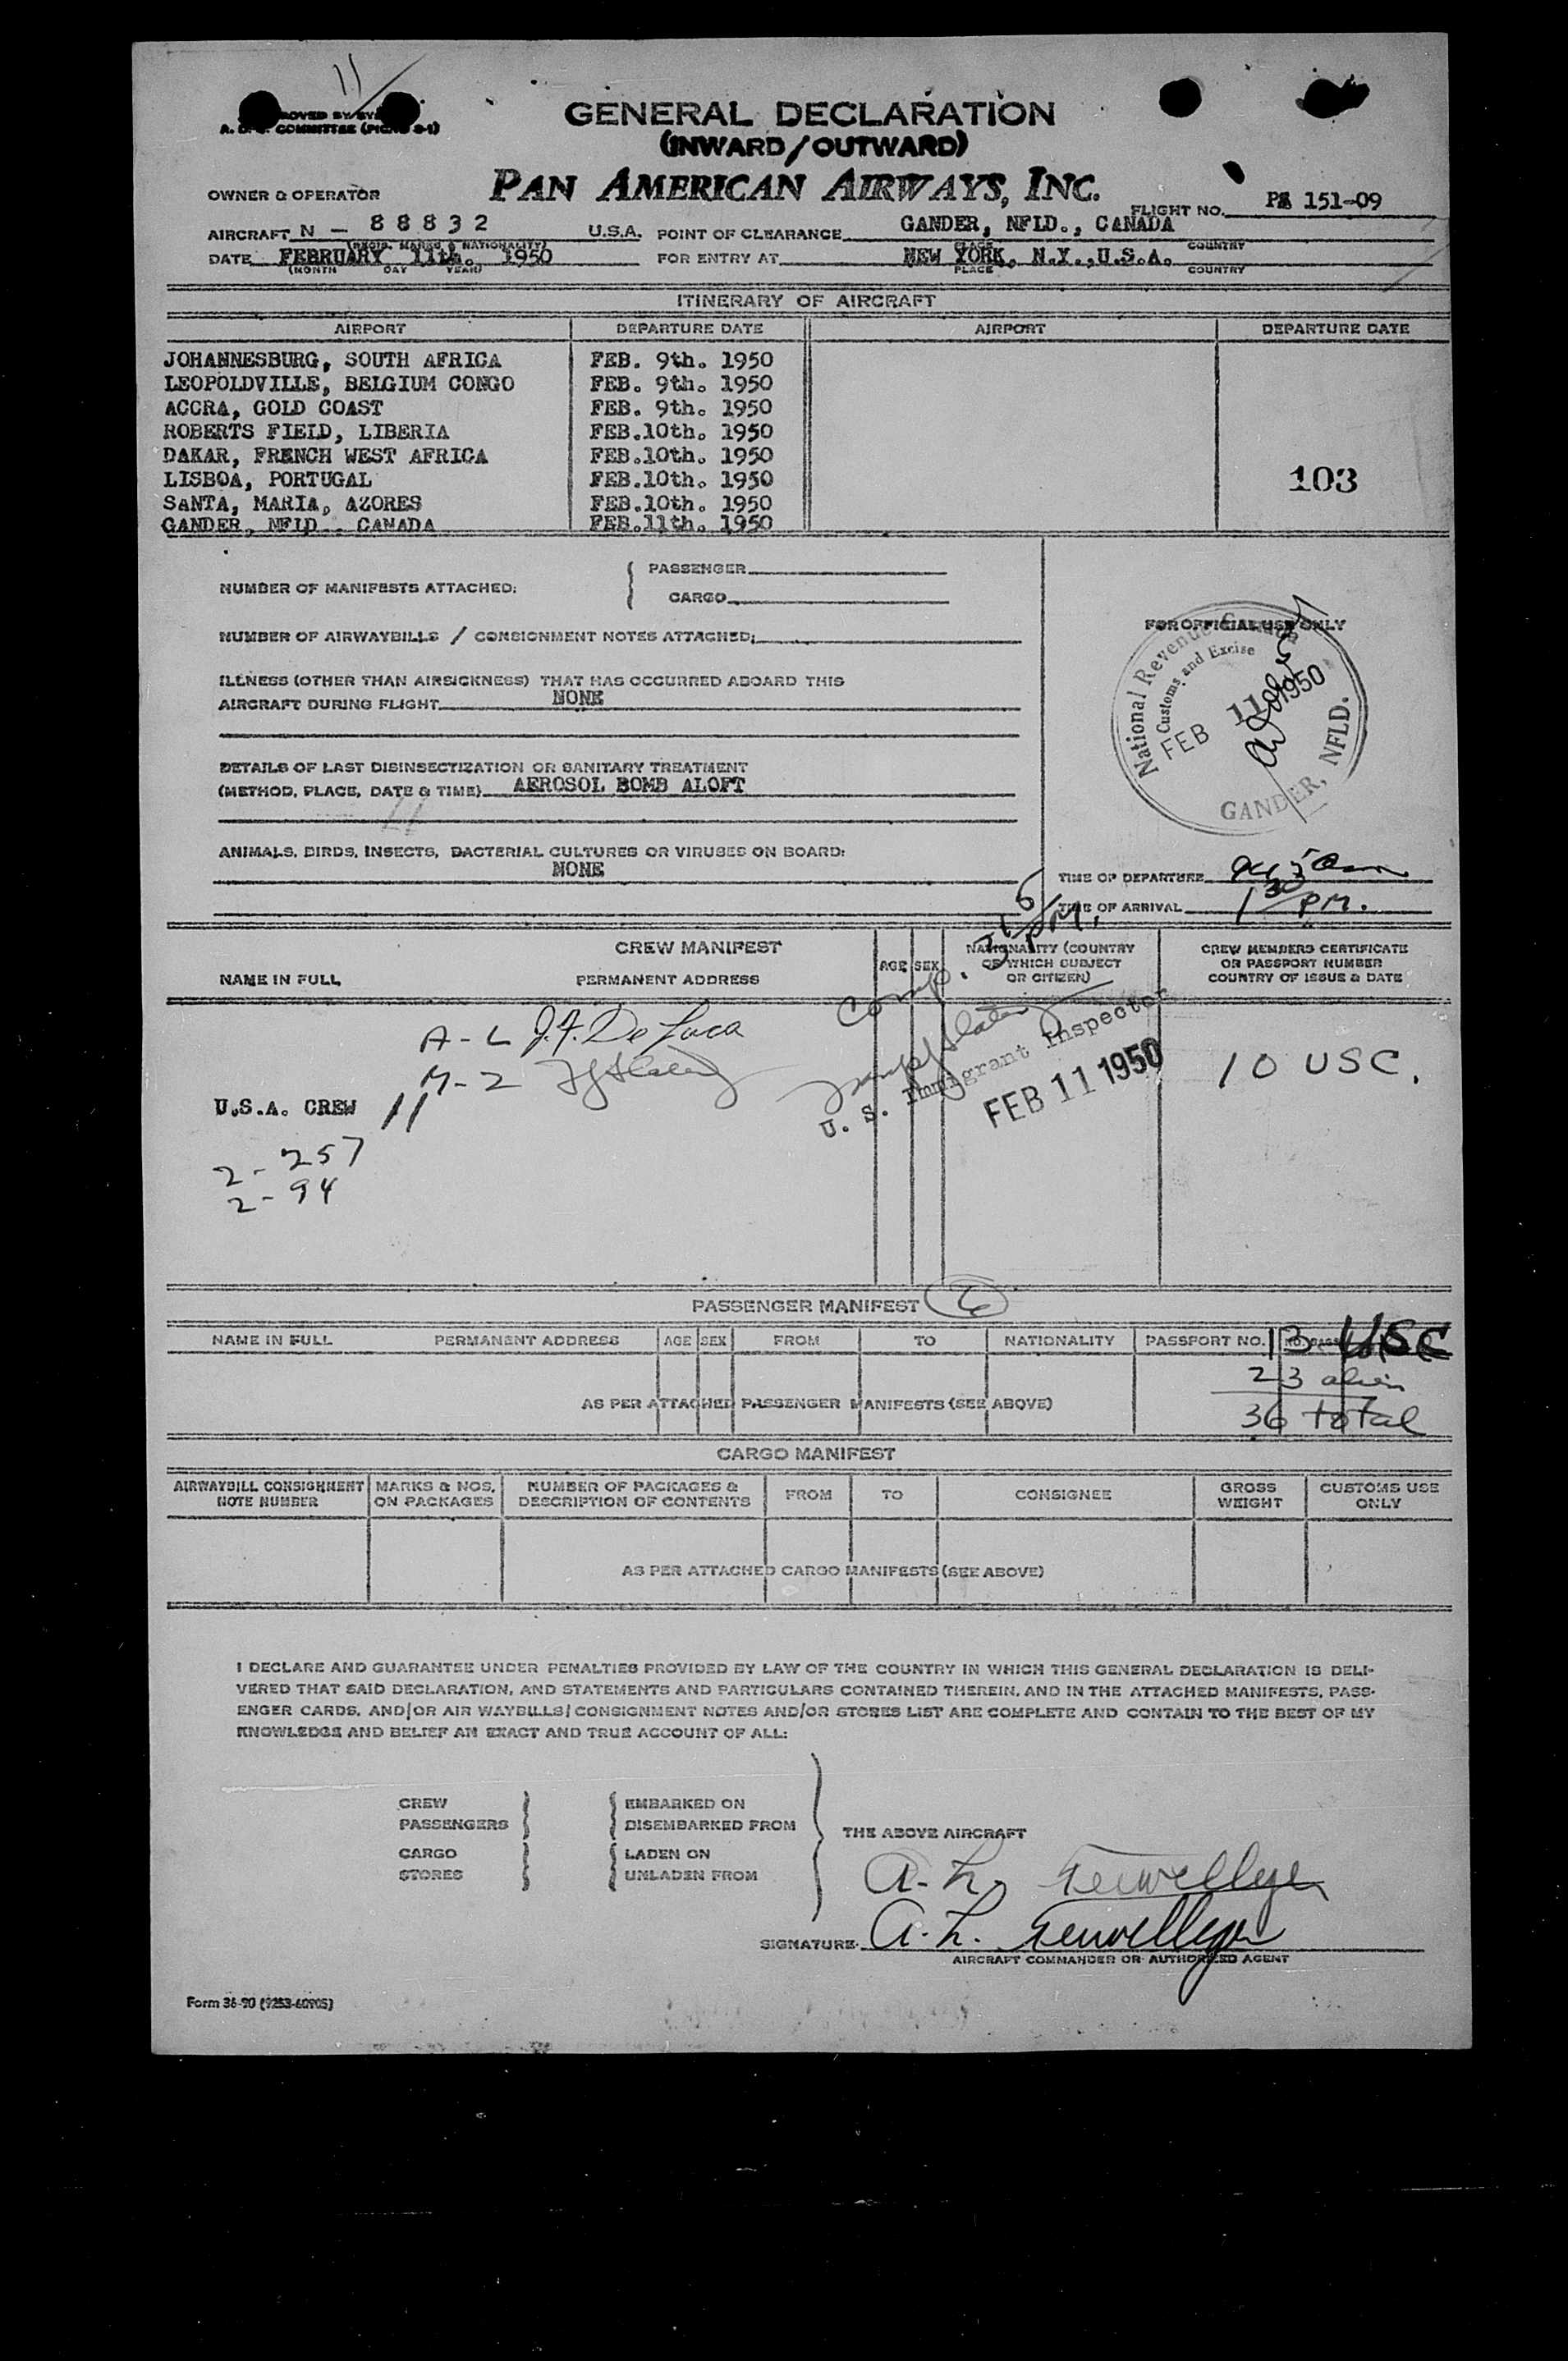 11
GENERAL DECLARATION
(INWARD/OUTWARD)
A. COMMITTEE
PAN AMERICAN AIRWAYS, INC.
OWNER & OPERATOR
FLIGHT NO. 151-09
AIRCRAFT N - 88832 U.S.A. POINT OF CLEARANCE GANDER, NFLD., CANADA
(REGIS. MARKS & NATIONALITY) PLACE COUNTRY
DATE FEBRUARY 11th. 1950 FOR ENTRY AT NEW YORK, N.Y.,U.S.A.
(MONTH DAY YEAR) PLACE COUNTRY
ITINERARY OF AIRCRAFT
AIRPORT DEPARTURE DATE AIRPORT DEPARTURE DATE
JOHANNESBURG, SOUTH AFRICA FEB. 9th. 1950
LEOPOLDVILLE, BELGIUM CONGO FEB. 9th. 1950
ACCRA, GOLD COAST FEB. 9th. 1950
ROBERTS FIELD, LIBERIA FEB.10th. 1950
DAKAR, FRENCH WEST AFRICA FEB.10th. 1950
LISBOA, PORTUGAL FEB.10th. 1950
103
SANTA, MARIA, AZORES FEB.10th. 1950
GANDER, NFLD., CANADA FEB.11th. 1950
NUMBER OF MANIFESTS ATTACHED: PASSENGER
CARGO
NUMBER OF AIRWAYBILLS / CONSIGNMENT NOTES ATTACHED:
FOR OFFICIAL USE ONLY
National Revenue
Customs and Excise
FEB 11 1950
GANDER, NFLD.
ILLNESS (OTHER THAN AIRSICKNESS) THAT HAS OCCURRED ABOARD THIS
AIRCRAFT DURING FLIGHT NONE
DETAILS OF LAST DISINSECTIZATION OR SANITARY TREATMENT
(METHOD, PLACE, DATE & TIME) AEROSOL BOMB ALOFT
11
ANIMALS, BIRDS, INSECTS, BACTERIAL CULTURES OR VIRUSES ON BOARD:
NONE
TIME OF DEPARTURE
TIME OF ARRIVAL 1 30 PM.
CREW MANIFEST
NAME IN FULL PERMANENT ADDRESS AGE SEX NATIONALITY (COUNTRY OF WHICH SUBJECT OR CITIZEN) CREW MEMBERS CERTIFICATE OR PASSPORT NUMBER COUNTRY OF ISSUE & DATE
Comp. PM.
A-L J.F. De Luca
M-2
U.S.A. CREW 11
U. S. Immigrant Inspector
FEB 11 1950
10 USC.
2-257
2-94
PASSENGER MANIFEST
NAME IN FULL PERMANENT ADDRESS AGE SEX FROM TO NATIONALITY PASSPORT NO.
13 USC
23 alien
AS PER ATTACHED PASSENGER MANIFESTS (SEE ABOVE)
36 total
CARGO MANIFEST
AIRWAYBILL CONSIGNMENT NOTE NUMBER MARKS & NOS. ON PACKAGES NUMBER OF PACKAGES & DESCRIPTION OF CONTENTS FROM TO CONSIGNEE GROSS WEIGHT CUSTOMS USE ONLY
AS PER ATTACHED CARGO MANIFESTS (SEE ABOVE)
I DECLARE AND GUARANTEE UNDER PENALTIES PROVIDED BY LAW OF THE COUNTRY IN WHICH THIS GENERAL DECLARATION IS DELI-
VERED THAT SAID DECLARATION, AND STATEMENTS AND PARTICULARS CONTAINED THEREIN, AND IN THE ATTACHED MANIFESTS, PASS-
ENGER CARDS, AND/OR AIR WAYBILLS/CONSIGNMENT NOTES AND/OR STORES LIST ARE COMPLETE AND CONTAIN TO THE BEST OF MY
KNOWLEDGE AND BELIEF AN EXACT AND TRUE ACCOUNT OF ALL:
CREW EMBARKED ON
PASSENGERS DISEMBARKED FROM
THE ABOVE AIRCRAFT
CARGO LADEN ON
STORES UNLADEN FROM
A. L. Terwelleger
SIGNATURE A. L. Terwelleger
AIRCRAFT COMMANDER OR AUTHORIZED AGENT
Form 36-90 (9253-60905)